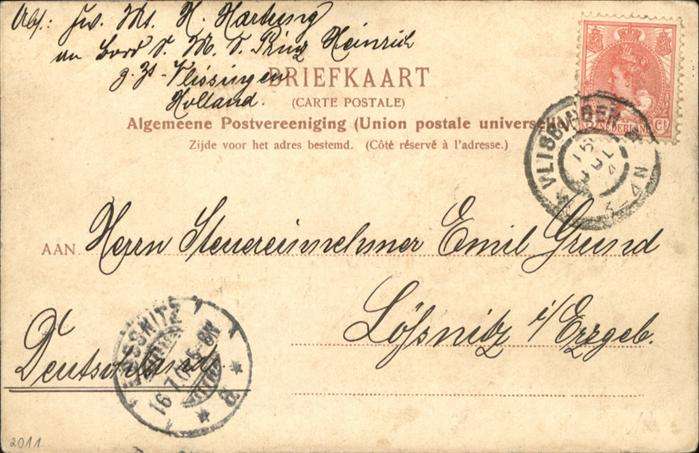 Abs: Jw. Ms. H. Hartung
an Bord S. M. S. Prinz Heinrich
z. Zt. Vlissingen
Holland.
BRIEFKAART
(CARTE POSTALE)
Algemeene Postvereeniging (Union postale universelle)
Zijde voor het adres bestemd. (Côté réservé à l'adresse.)
NEDERLAND
VLISSINGEN
JUL
3-4N
AAN Herrn Steuereinnehmer Emil Grund
Lößnitz i/Erzgeb.
Deutschland
LOESSNITZ
16 7
2011